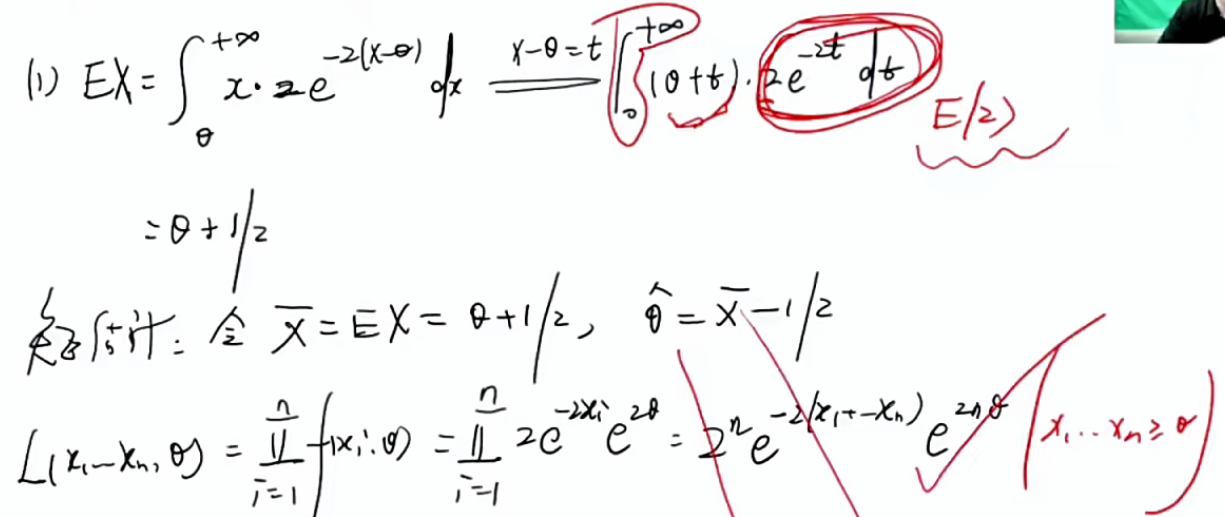 (1) EX = ∫_θ^{+∞} x·2e^{-2(x-θ)} dx \xlongequal{x-θ=t} ∫_0^{+∞} (θ+t)·2e^{-2t} dt E(2)
= θ + 1/2
矩估计: 令 X̄ = EX = θ + 1/2, θ̂ = X̄ - 1/2
L(x₁…xₙ, θ) = ∏_{i=1}^{n} f(xᵢ; θ) = ∏_{i=1}^{n} 2e^{-2xᵢ} e^{2θ} = 2ⁿ e^{-2(x₁+…xₙ)} e^{2nθ} (x₁…xₙ ≥ θ)